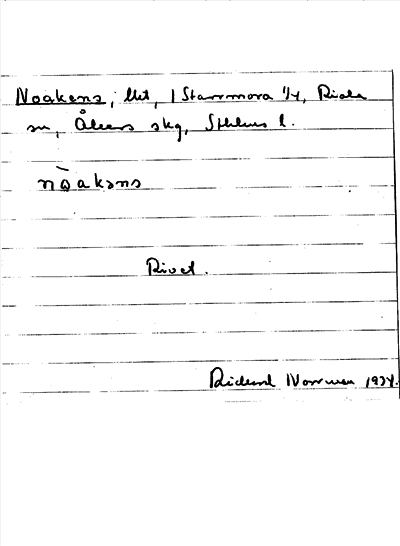 Noakens, lht, 1 Starrmora 1/4, Riala
sn, Åkers skg, Sthlms l.
nòakəns
Rivet.
Rickard Norrman 1934.